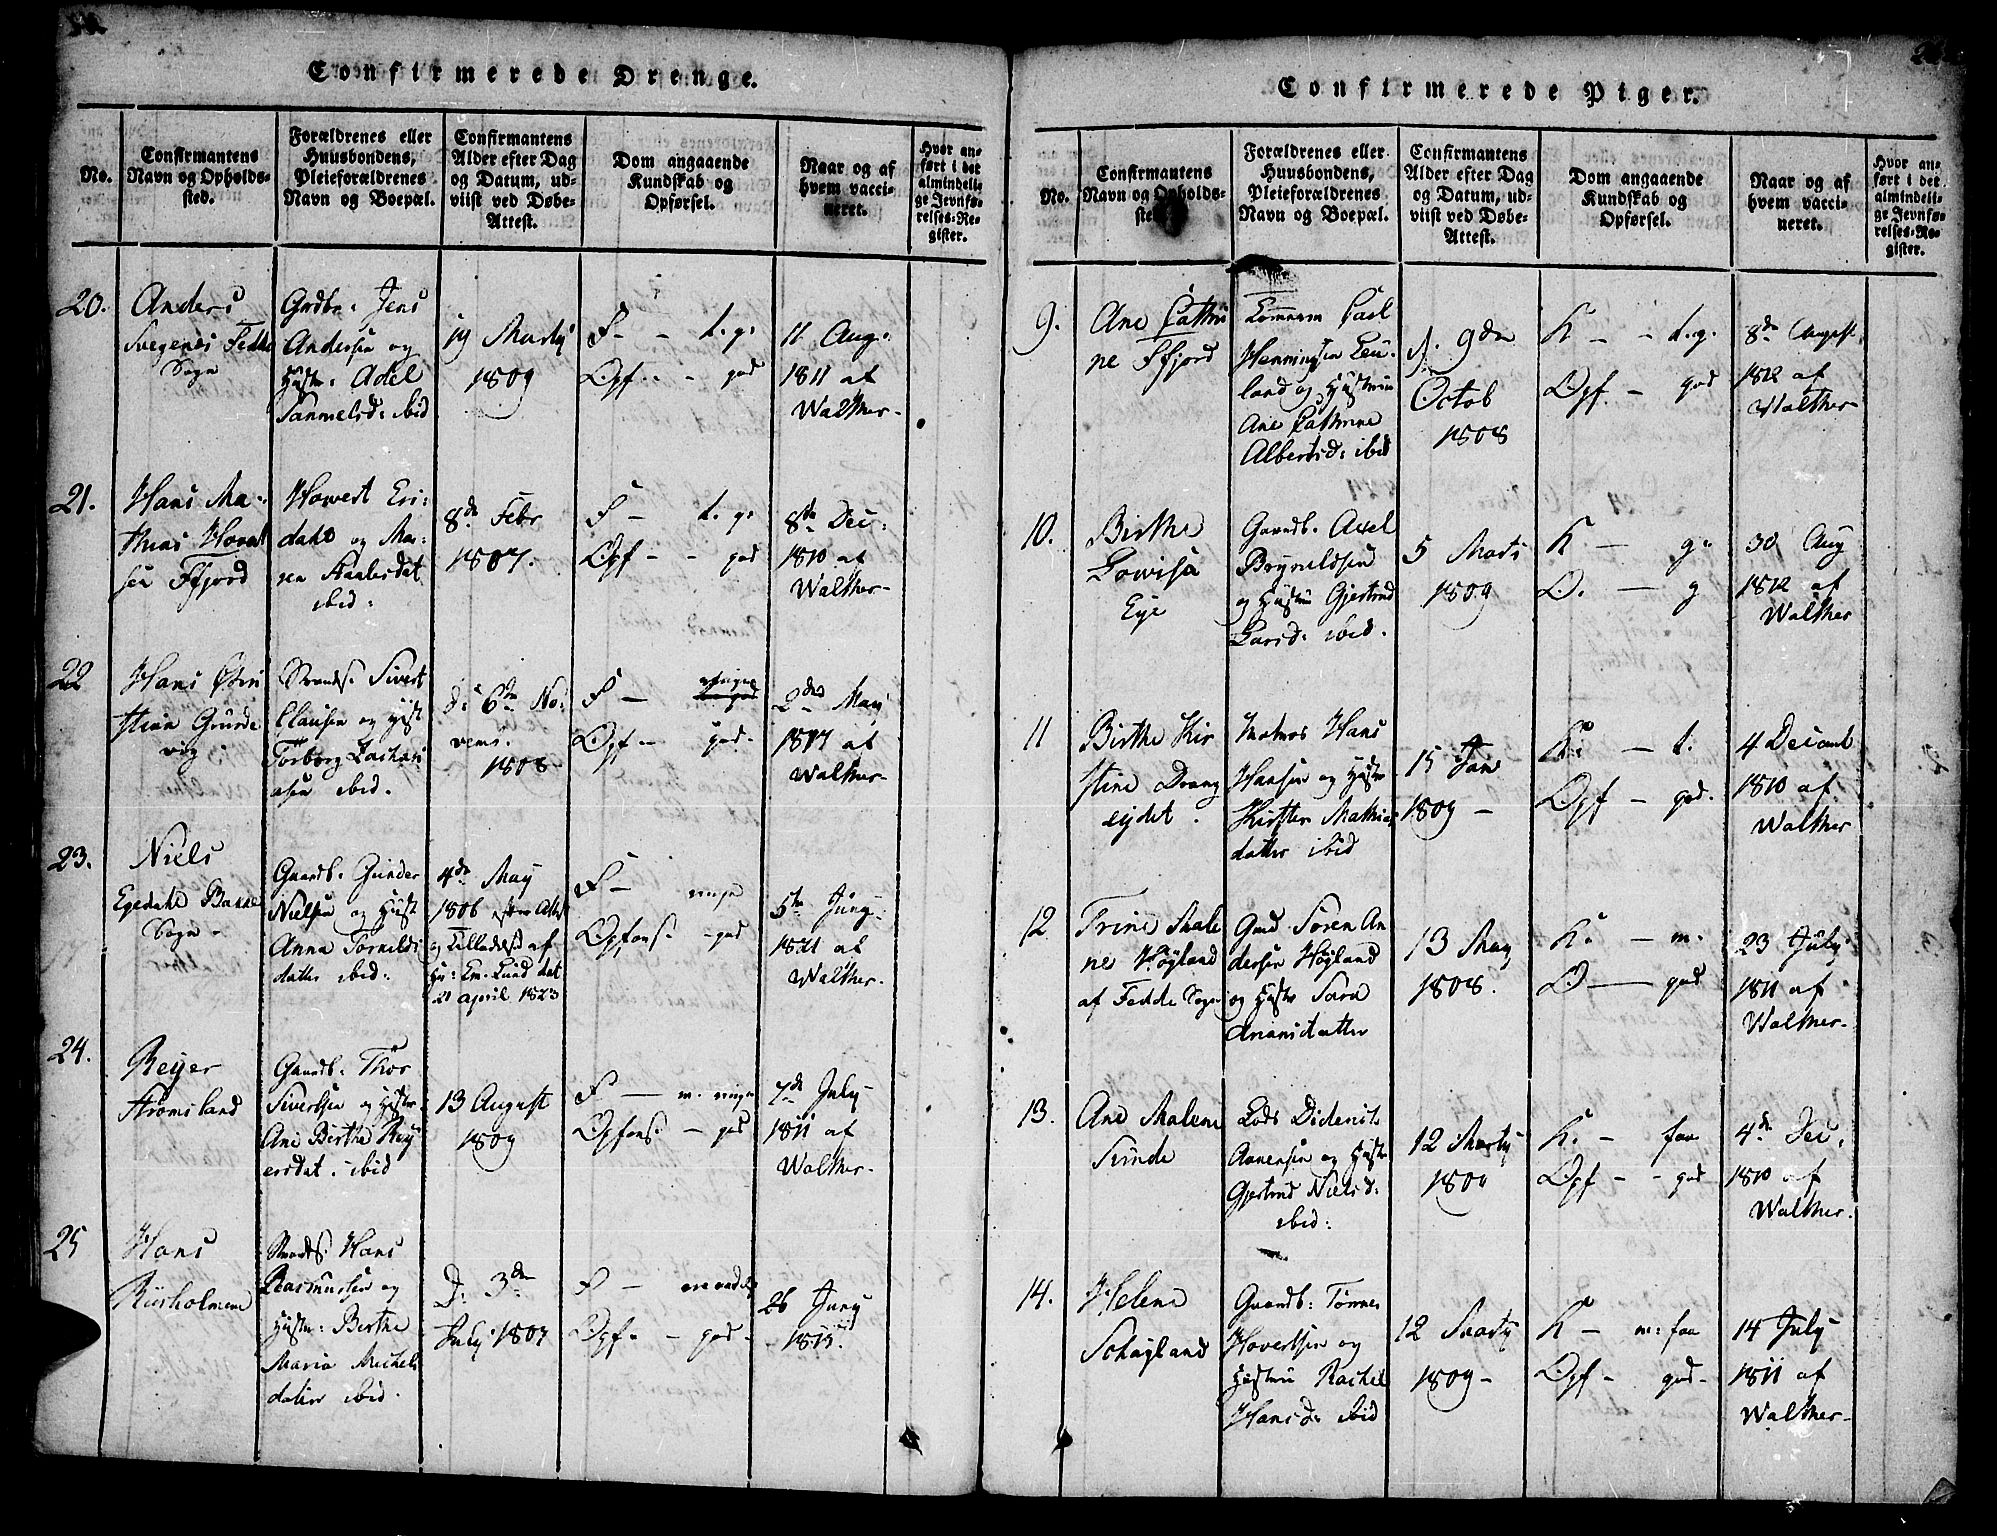 Confirmerede Drenge.
No.
Confirmantens
Navn og Opholds-
sted.
Forældrenes eller
Huusbondens,
Pleieforældrenes
Navn og Boepæl.
Confirmantens
Alder efter Dag
og Datum, ud-
viist ved Døbe-
Attest.
Dom angaaende
Kundskab og
Opførsel.
Naar og af
hvem vacci-
neret.
Hvor an-
ført i det
almindeli-
ge Jevnfø-
relses-Re-
gister.
20.
Anders
Svegenes Fedde
Sogn
Grdbr: Jens
Andersen og
Hustr: Adel
Sammelsd: ibid
19 Martj
1809
F - - t. g.
Opf. - - god
11 Aug.
1811 af
Walther-
21.
Hans Ma-
thias Hovart
sen Ffjord
Howert Eri-
dahl og Ma-
ren Staalesdat
ibid:
8de Febr
1807.
F - t. g.
Opf - - god
8de Dec:
1810 af
Walther-
22
Hans Chri
stian Grunde
vig
Strands. Sivert
Clausen og Hust
Torborg Zachari
asen ibid.
d: 6te No:
vems.
1808
F - magne
Opf - god.
2den May
1817 af
Walther-
23.
Niels
Egedahl Bakke
Sogn -
Gaardb. Gunder
Nielsen og Hust
Anna Torkilds
datter ibid:
4de May
1806 efter Attest
og Tilladelse af
Hr: Em. Lund dat
21 april 1823
F - maja
Opføns. - god
5te Juny
1821 af
Walther-
24.
Reyer
Stromsland
Gaardb. Thor
Sivertsen og Hustr.
Ane Birthe Rey
ersdat. ibid
13 August
1809
F - m. maja
Opføns. - god
7de July
1811 af
Walther-
25
Hans
Riisholmen
Strands. Hans
Rasmussen og
Hustr: Berthe
Maria Michels
datter ibid.
D: 3de
July 1807
F - maadelig
Opf. - god -
26 Juny
- 1813.
Confirmerede Piger.
No.
Confirmantens
Navn og Opholds-
sted.
Forældrenes eller
Huusbondens,
Pleieforældrenes
Navn og Boepæl.
Confirmantens
Alder efter Dag
og Datum, ud-
viist ved Døbe-
Attest.
Dom angaaende
Kundskab og
Opførsel.
Naar og af
hvem vacci-
neret.
Hvor an-
ført i det
almindeli-
ge Jevnfø-
relses-Re-
gister.
9.
Ane Cathri
ne Ffjord
Carl
Henningsen Leu-
land og Hustru
Ane Cathrine
Albertsd: ibid
d. 9de
Octob
1808
K - - t.g.
Opf. - god
8de August
1812 af
Walther-
10.
Birthe
Lowisa
Eye
Gaardb. Axel
Brynildsen
og Hustru Gjertrud
Larsd: ibid.
5 Marts
1809
K. - g.
O. - g
30 Aug
1812 af
Walther
11
Birthe Kir
stine Drang
eydet.
Matros Hans
Hansen og Hustr
Kirsten Mathias
datter ibid
15 Jan
1809 -
K: - t.
Opf - god.
4 Decemb
1810 af
Walther
12
Trine Male
ne Högland
af Fedde Sogn
Gaard. Soren An
dersen Högland
og Hustr Sara
Ananisdatter
13 May
1808.
K. - m.
O - god
23 July
1811 af
Walther-
13.
Ane Malene
Sunde
Lods Didenit.
Aanensen og Hustr
Gjertrud Nielsd:
ibid:
12 Martj
1809
K. - faa
Opf - - god
4de Dec.
1810 af
Walther.
14.
Helene
Schagland
Gaardb: Tønnes
Hovertsen og
Hustru Rachel
Hansd: ibid
12 Martj
1809 -
K - m: faa
Opf - god -
14 July
1811 af
Walther-